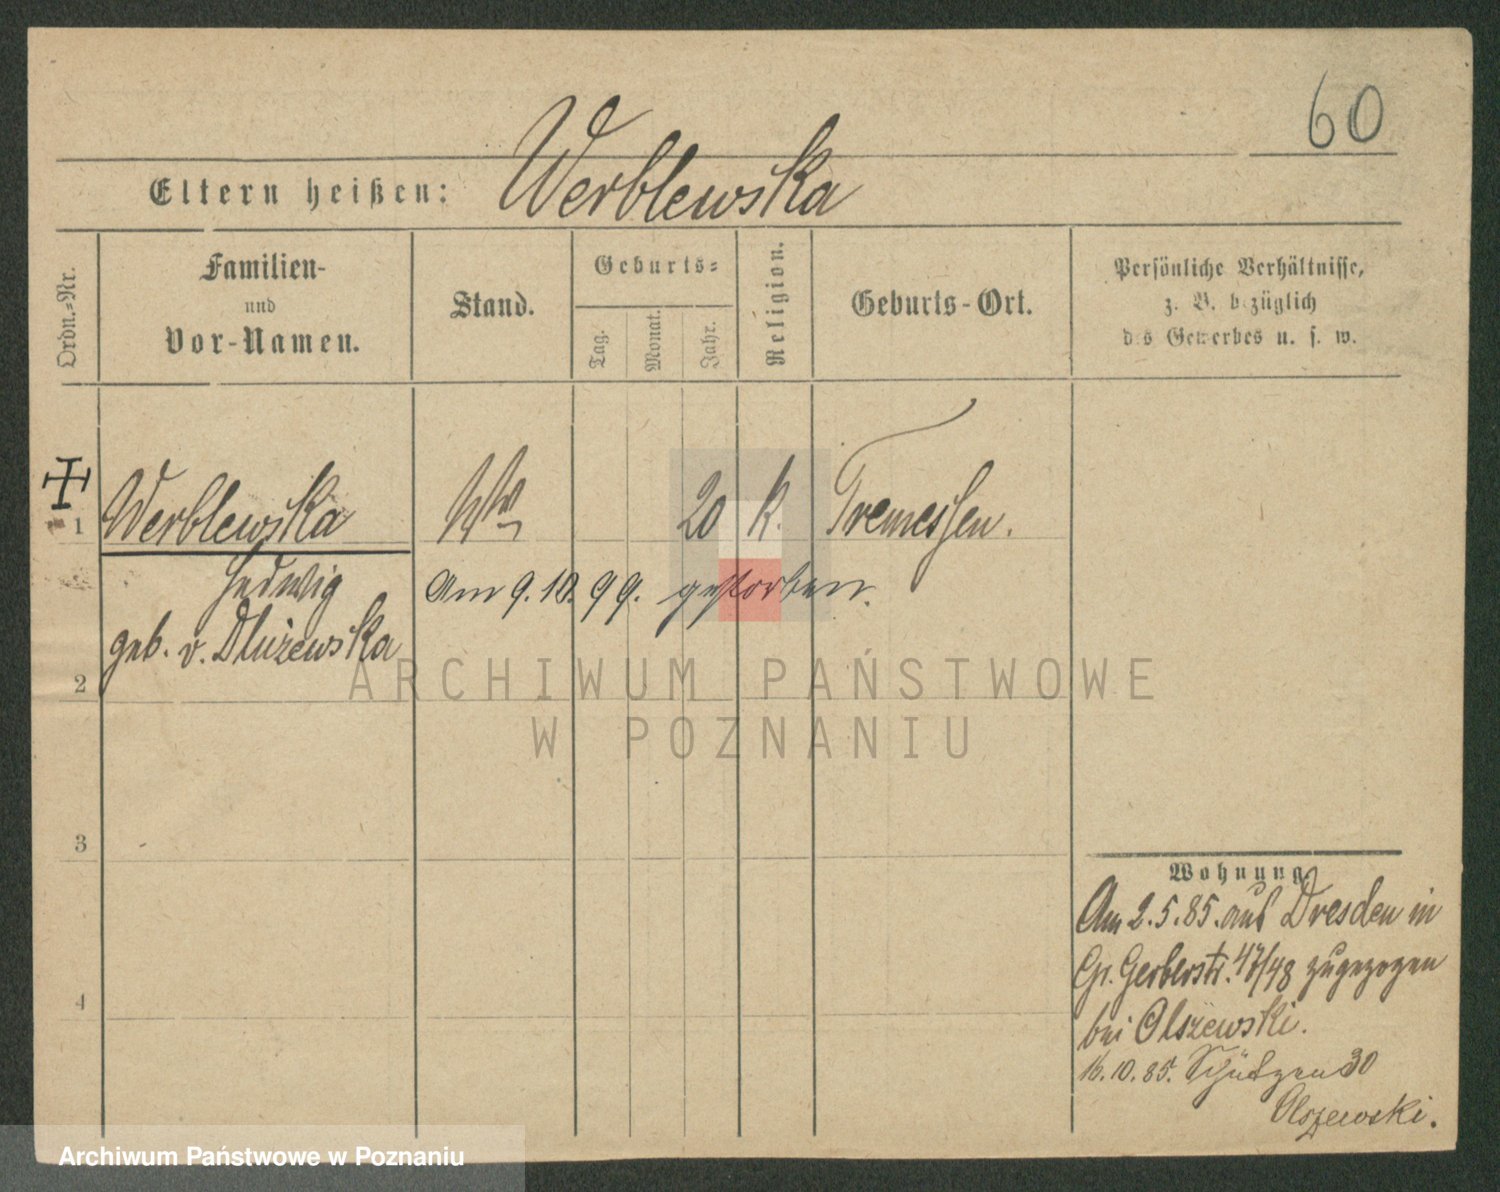 60
Eltern heißen: Werblewska
Ordn.-Nr.
Familien-
und
Vor-Namen.
Stand.
Geburts-
Tag.
Monat.
Jahr.
Religion.
Geburts-Ort.
Persönliche Verhältnisse,
z. B. bezüglich
des Gewerbes u. s. w.
1 Werblewska Ww 20 k. Tremessen.
Hedwig
geb. v. Dlużewska
Am 9.10.99. gestorben.
2
3
4
Wohnung.
Am 2.5.85. aus Dresden in
Gr. Gerberstr. 47/48 zugezogen
bei Olszewski.
16.10.85. Schützen 30
Olszewski.
ARCHIWUM PAŃSTWOWE
W POZNANIU
Archiwum Państwowe w Poznaniu